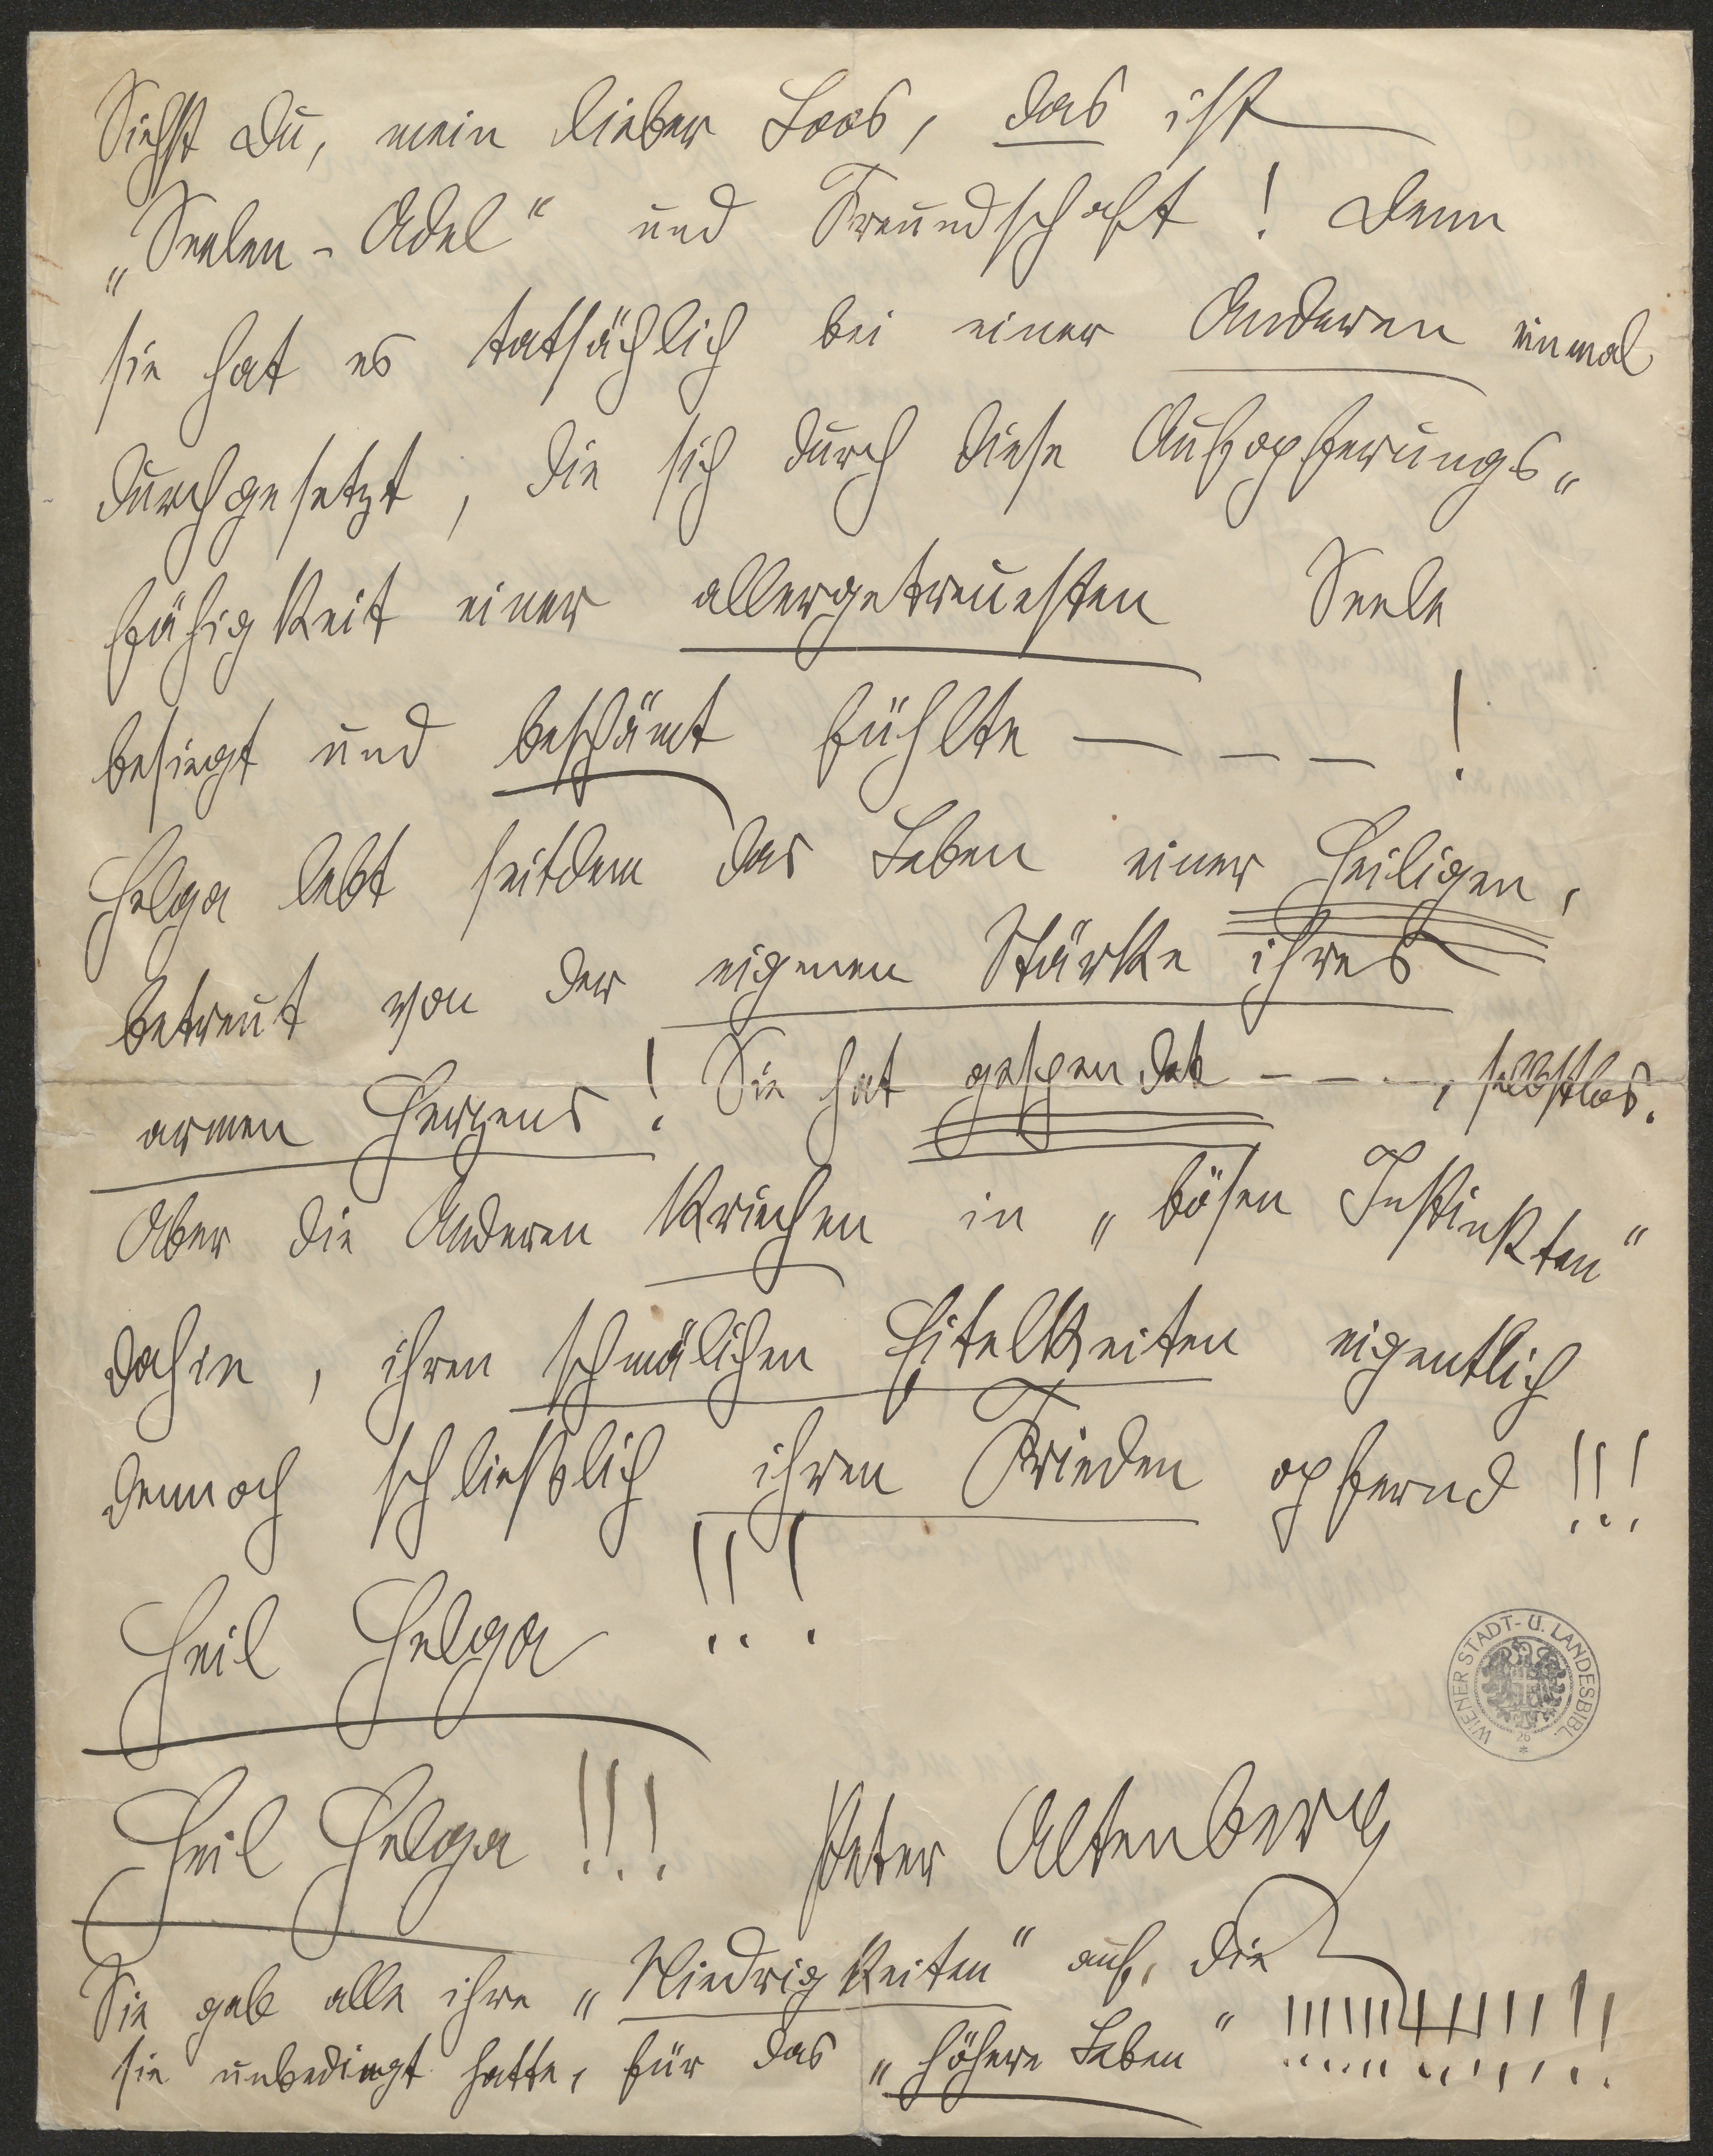 Siehst Du, mein lieber Loos, das ist
„Seelen-Adel“ und Freundschaft! Denn
sie hat es tatsächlich bei einer Anderen einmal
durchgesetzt, die sich durch diese Aufopferungs„
fähigkeit einer allergetreuesten Seele
besiegt und beschämt fühlte — — — !
Helga lebt seitdem das Leben einer Heiligen,
betreut von der eigenen Stärke ihres
armen Herzens! Sie hat gespendet - - - -, selbstlos.
Aber die Anderen kriechen in „bösen Instinkten“
dahin, ihren schmälichen Eitelkeiten eigentlich
dennoch schließlich ihren Frieden opfernd!!!
Heil Helga!!!
Heil Helga!!! Peter Altenberg
Sie gab alle ihre „Niedrigkeiten“ auf, die
sie unbedingt hatte, für das „höhere Leben“ !!!!!!!!!!!!!
WIENER STADT- U. LANDESBIBL.